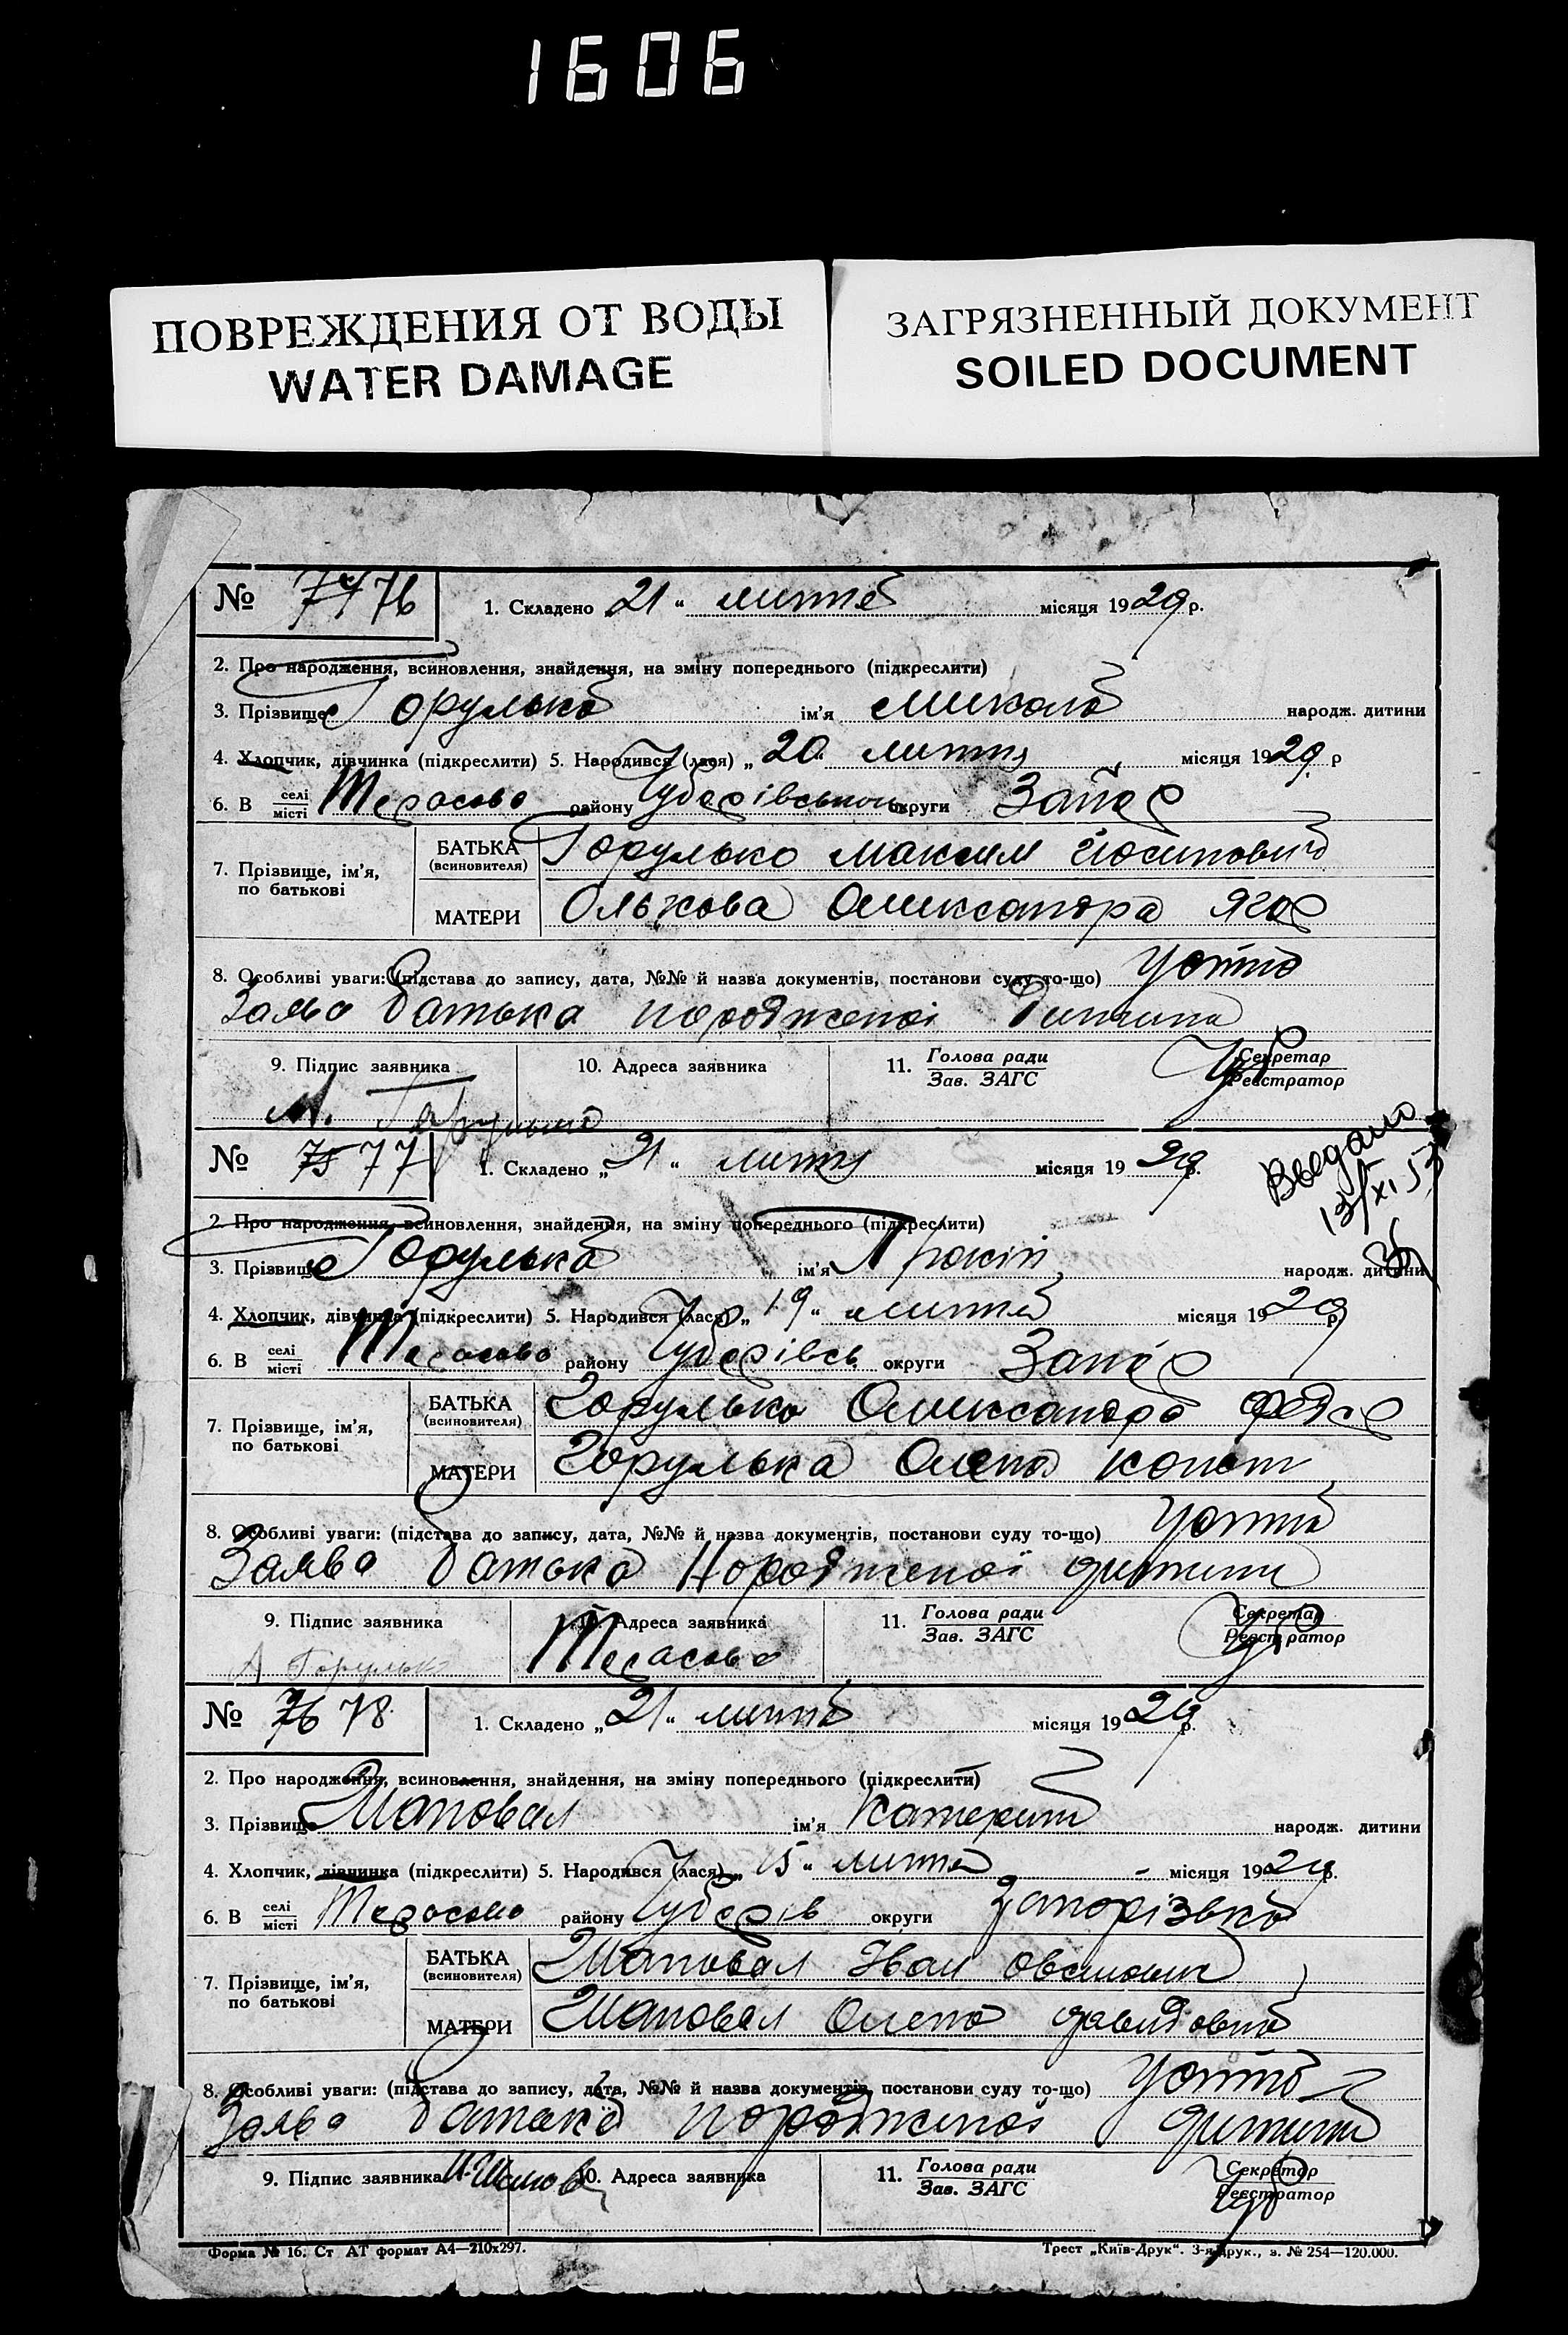 1606
ПОВРЕЖДЕНИЯ ОТ ВОДЫ
WATER DAMAGE
ЗАГРЯЗНЕННЫЙ ДОКУМЕНТ
SOILED DOCUMENT
№ 74 76 1. Складено 21 " місяця 1929 р.
2. Про народження, всиновлення, знайдення, на зміну попереднього (підкреслити)
3. Прізвище Горулько ім'я Микола народж. дитини
4. Хлопчик, дівчинка (підкреслити) 5. Народився (лася) „ 20 " місяця 1929 р
6. В селі місті Терасово району округи
7. Прізвище, ім'я, по батькові
БАТЬКА (всиновителя) Горулько Максим
МАТЕРИ Олександра
8. Особливі уваги: (підстава до запису, дата, №№ й назва документів, постанови суду то-що) Устна
Заява батька народженої дитини
9. Підпис заявника 10. Адреса заявника 11. Голова ради Зав. ЗАГС Секретар Реєстратор
М. Горулько
№ 75 77 1. Складено „ 21 " місяця 19 29 р.
2. Про народження, всиновлення, знайдення, на зміну попереднього (підкреслити)
Выдано 13/XI 53
3. Прізвище Горулько ім'я народж. дитини
4. Хлопчик, дівчинка (підкреслити) 5. Народився (лася) „ 19 " місяця 1929 р.
6. В селі місті Терасово району округи
7. Прізвище, ім'я, по батькові
БАТЬКА (всиновителя) Горулько Олександр
МАТЕРИ Горулька Олена Конст
8. Особливі уваги: (підстава до запису, дата, №№ й назва документів, постанови суду то-що) Устна
Заява батька народженої дитини
9. Підпис заявника 10. Адреса заявника 11. Голова ради Зав. ЗАГС Секретар Реєстратор
А Горулько Терасово
№ 76 78 1. Складено „ 21 " місяця 1929 р.
2. Про народження, всиновлення, знайдення, на зміну попереднього (підкреслити)
3. Прізвище Шаповал ім'я Катерина народж. дитини
4. Хлопчик, дівчинка (підкреслити) 5. Народився (лася) „ 15 " місяця 1929 р.
6. В селі місті Терасово району округи Запорізька
7. Прізвище, ім'я, по батькові
БАТЬКА (всиновителя) Шаповал Іван
МАТЕРИ Шаповал Олена Давидовна
8. Особливі уваги: (підстава до запису, дата, №№ й назва документів, постанови суду то-що) Устна
Заява батька народженої дитини
9. Підпис заявника 10. Адреса заявника 11. Голова ради Зав. ЗАГС Секретар Реєстратор
Форма № 16. Ст АТ формат А4—210х297. Трест „Київ-Друк". 3-я друк., з. № 254—120.000.